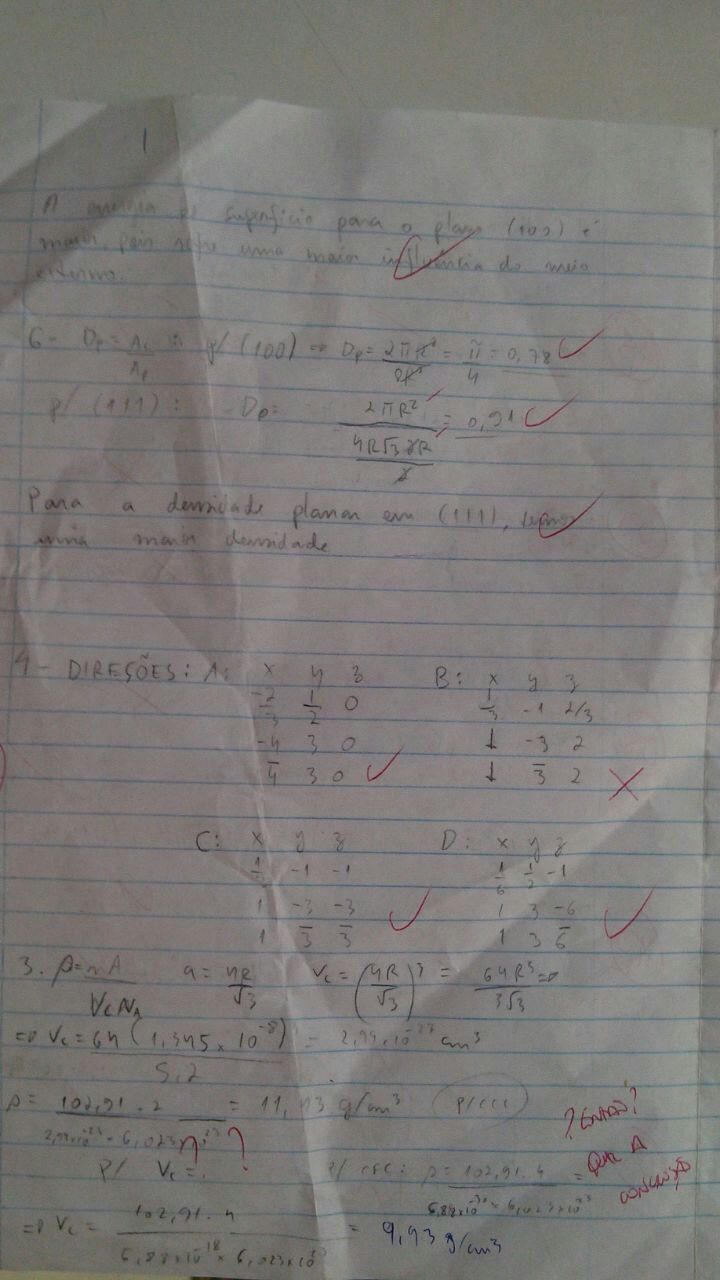 1
A energia de superfície para o plano (100) é
maior, pois sofre uma maior influência do meio
externo.
6- Dp = Ac/Ap ∴ p/ (100) => Dp = 2πR²/8R² = π/4 = 0,78
p/ (111): Dp = 2πR² / (4R√3 2R / 2) = 0,91
Para a densidade planar em (111), temos
uma maior densidade
4- DIREÇÕES: A: x y z B: x y z
-2/3 1/2 0 1/3 -1 2/3
-4 3 0 1 -3 2
4̄ 3 0 1 3̄ 2
C: x y z D: x y z
-1 -1 1/6 1/2 -1
1 -3 -3 1 3 -6
1 3̄ 3̄ 1 3 6̄
3. ρ = nA/VcNA a = 4R/√3 Vc = (4R/√3)³ = 64R³/3√3 =>
=> Vc = 64 (1,345 x 10⁻⁸)/5,2 = 2,99x10⁻²³ cm³
ρ = 102,91 . 2 / 2,99x10⁻²³ . 6,023x10²³ = 11,43 g/cm³ p/ccc
? ENTÃO?
p/ Vc = ? p/ CFC: ρ = 102,91 . 4 =
QUAL A
CONCLUSÃO
=> Vc = 102,91 . 4 = 9,93 g/cm³